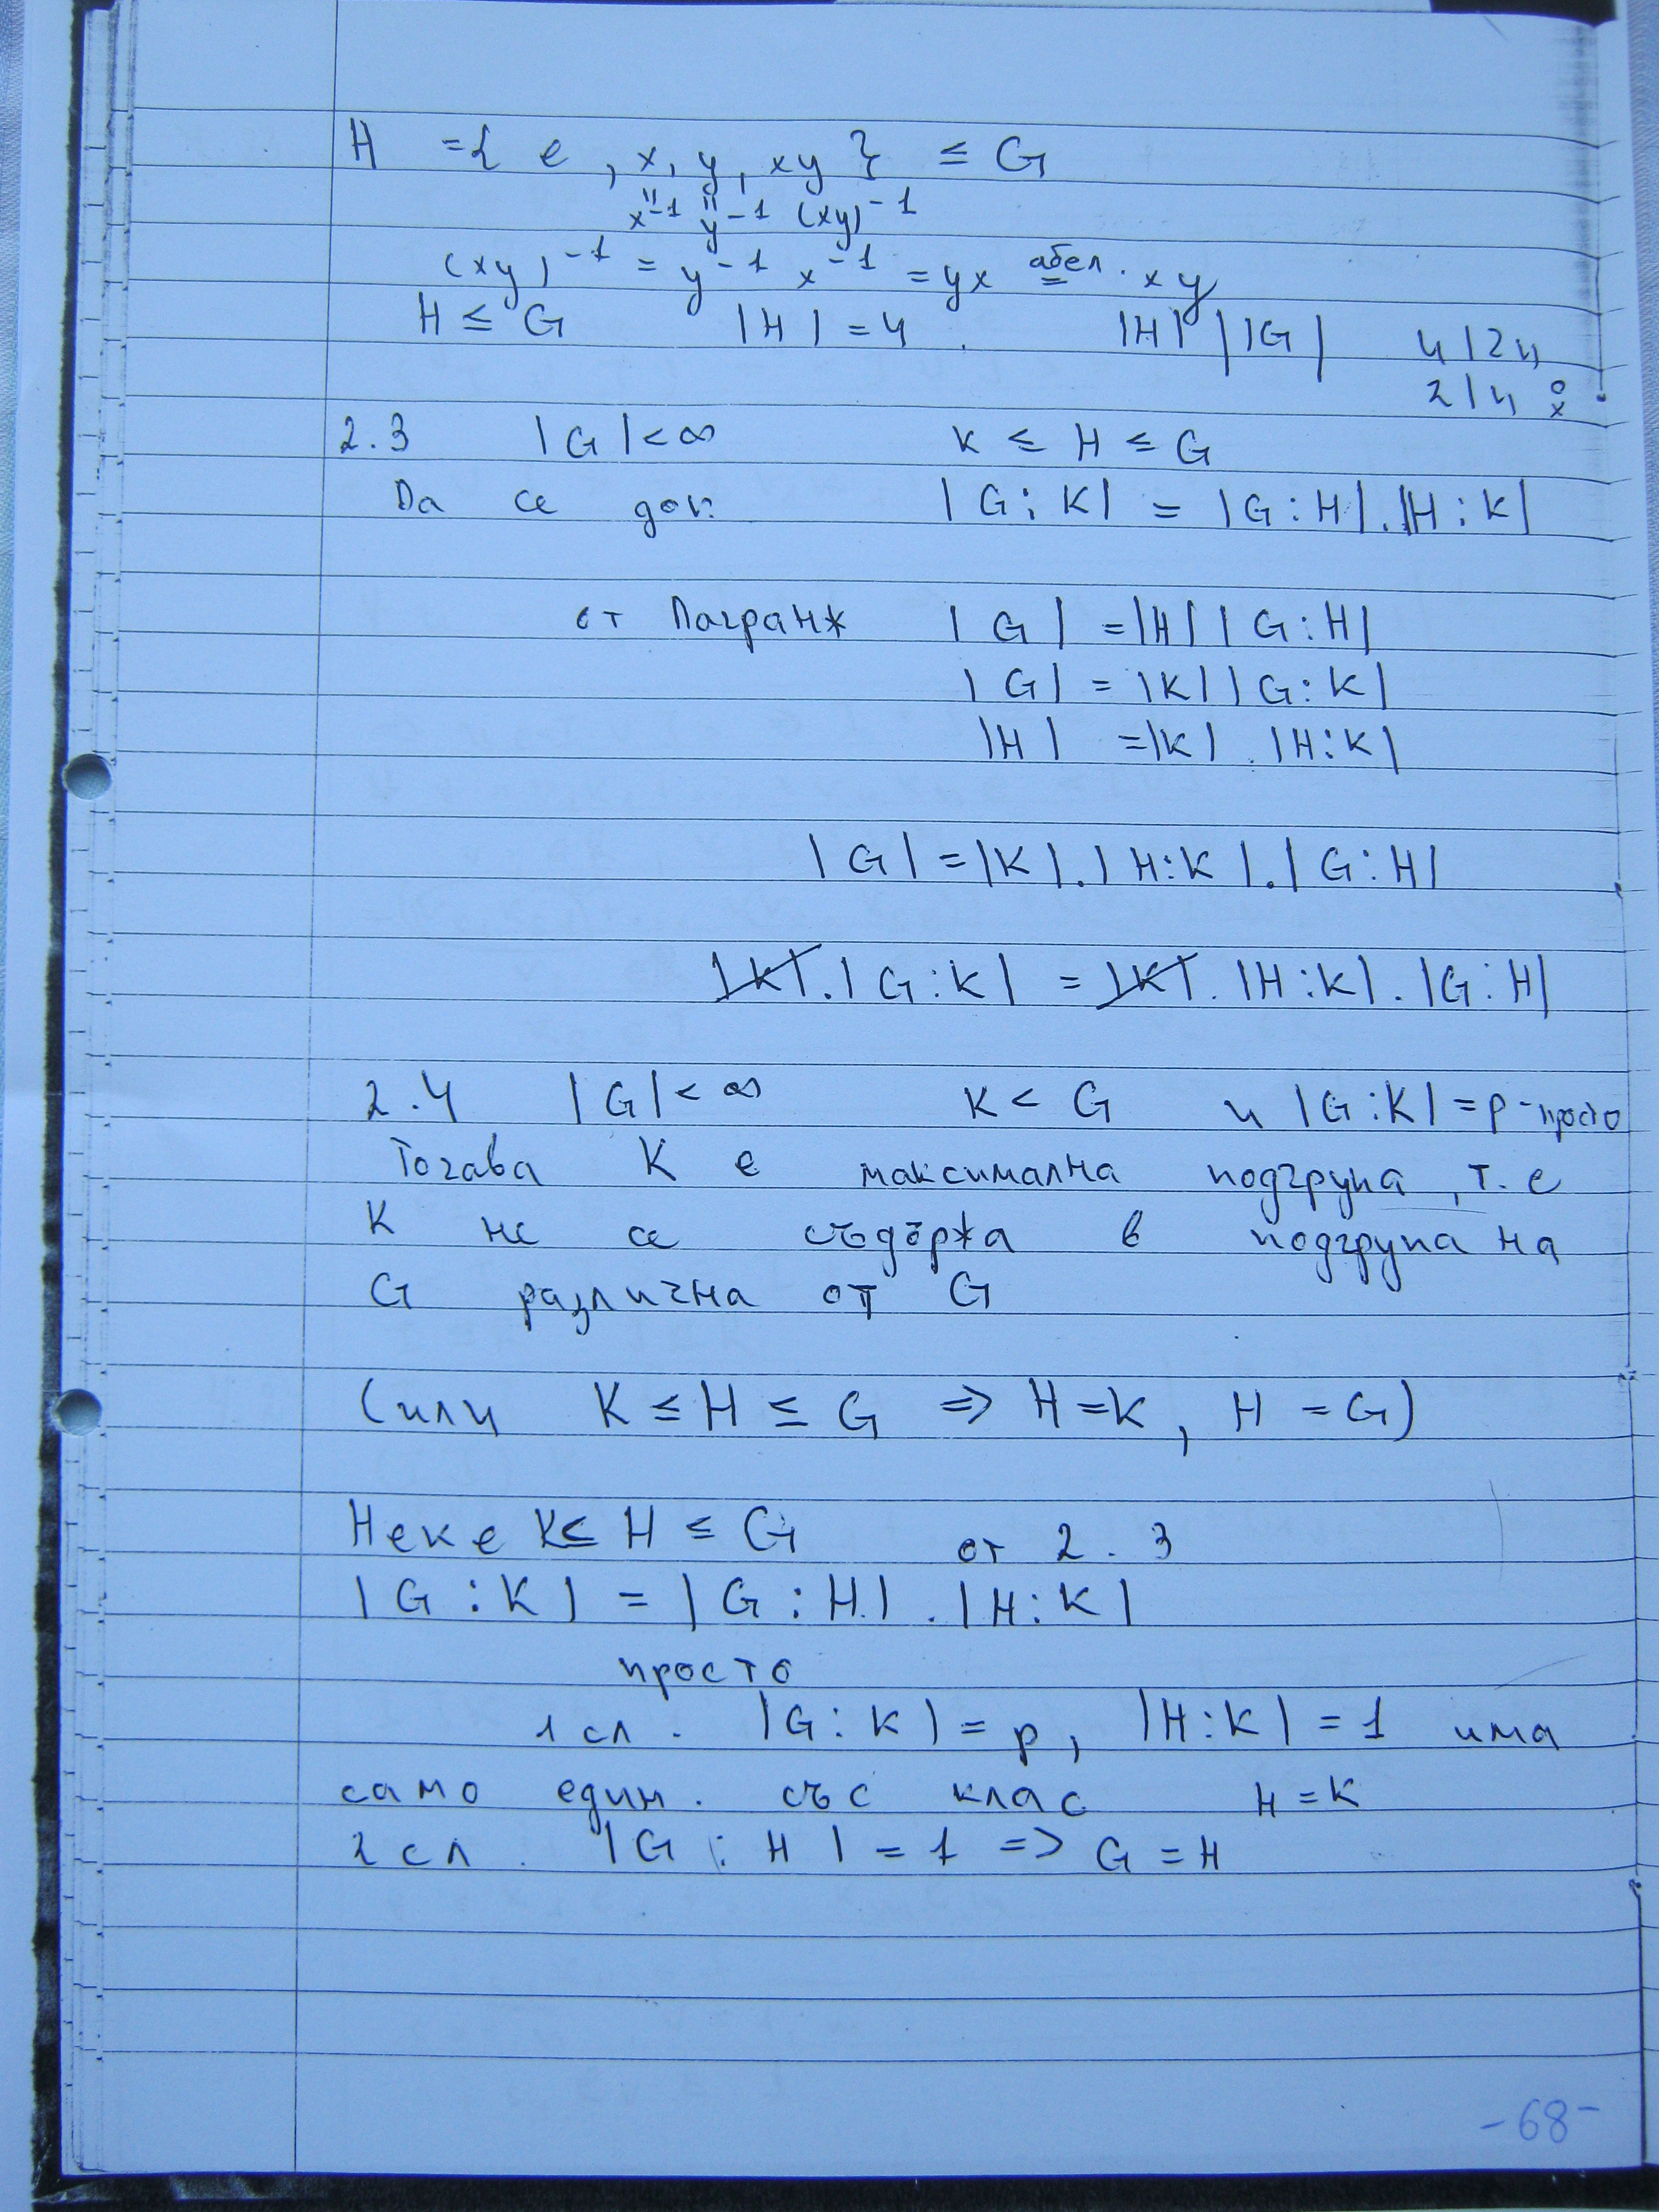 H = { e , x, y, xy } ≤ G
x⁻¹ y⁻¹ (xy)⁻¹
(xy)⁻¹ = y⁻¹ x⁻¹ = yx абел. = xy
H ≤ G |H| = 4 . |H| | |G| 4 | 2n
2 | n
2.3 |G| < ∞ K ≤ H ≤ G
Да се док. |G : K| = |G : H| . |H : K|
от Лагранж |G| = |H| |G : H|
|G| = |K| |G : K|
|H| = |K| . |H : K|
|G| = |K| . |H : K| . |G : H|
|K| . |G : K| = |K| . |H : K| . |G : H|
2.4 |G| < ∞ K < G и |G : K| = p - просто
Тогава K е максимална подгрупа, т.е
K не се съдържа в подгрупа на
G различна от G
(или K ≤ H ≤ G ⇒ H = K, H = G)
Неке K ≤ H ≤ G от 2.3
|G : K| = |G : H| . |H : K|
просто
1 сл. |G : K| = p, |H : K| = 1 има
само един. със клас H = K
2 сл. |G : H| = 1 => G = H
-68-